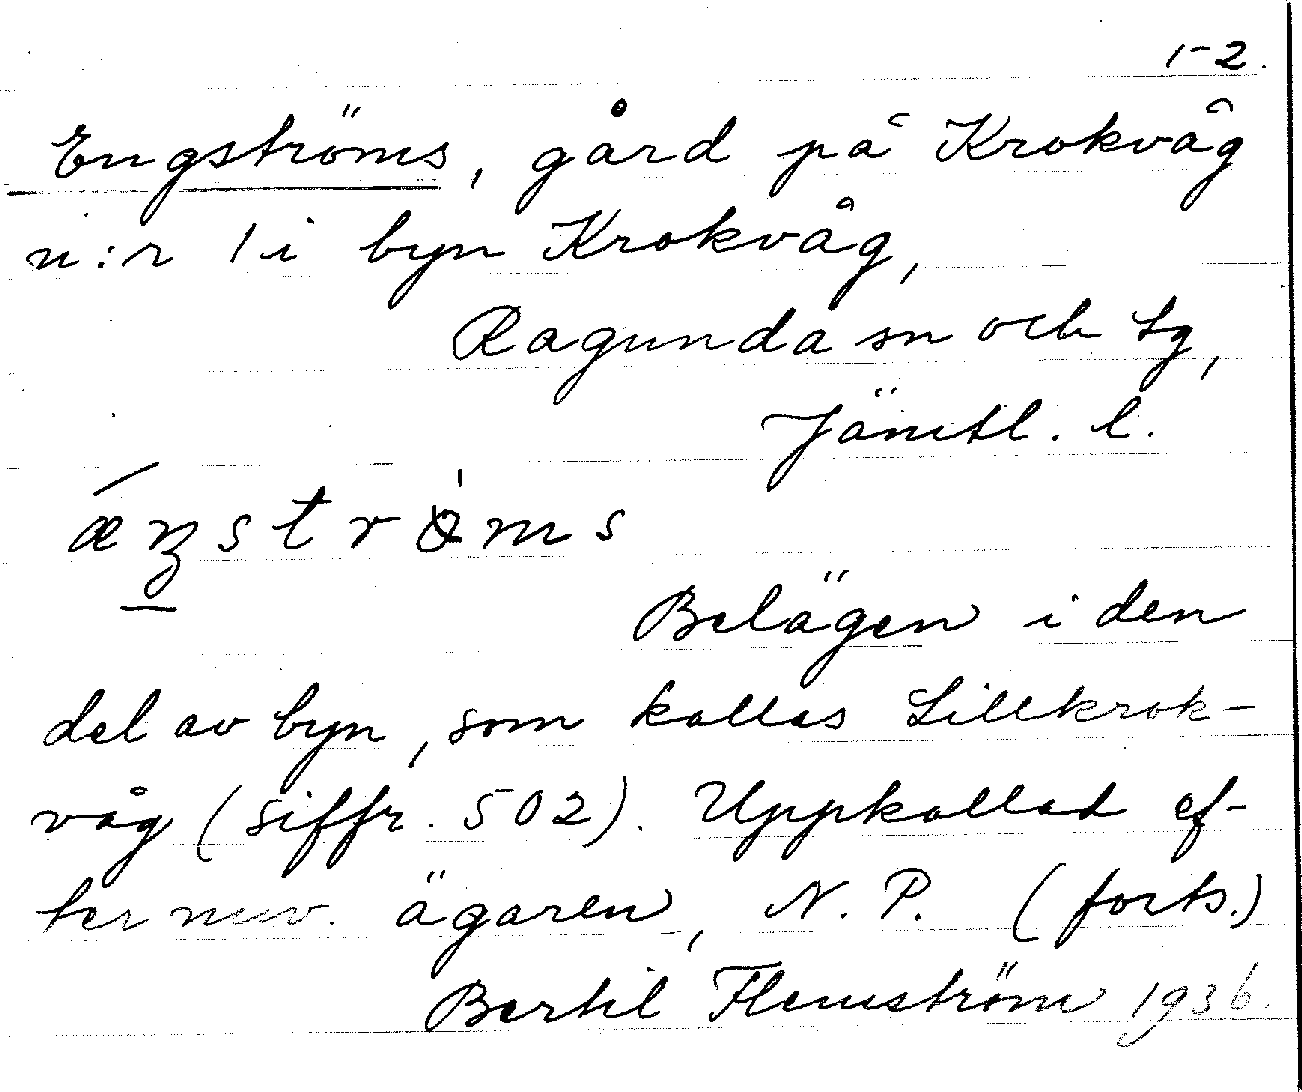 1-2.
Engströms, gård på Krokvåg
n:r 1 i byn Krokvåg,
Ragunda sn och tg,
Jämtl. l.
ǽŋströ̀ms
Belägen i den
del av byn, som kallas Lillkrok-
våg (siffr. 502). Uppkallad ef-
ter nuv. ägaren, N. P. (forts.)
Bertil Flemström 1936.